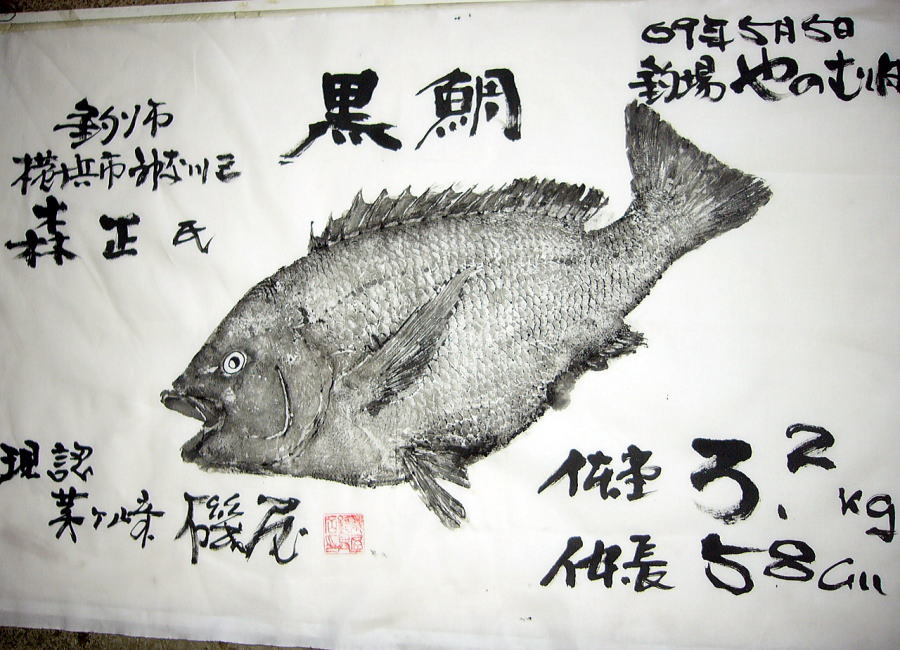 09年5月5日
釣場
黒鯛
釣り師
横浜市神奈川区
森 正 氏
現認
茅ヶ崎 磯屋
体重 3.2kg
体長 58cm